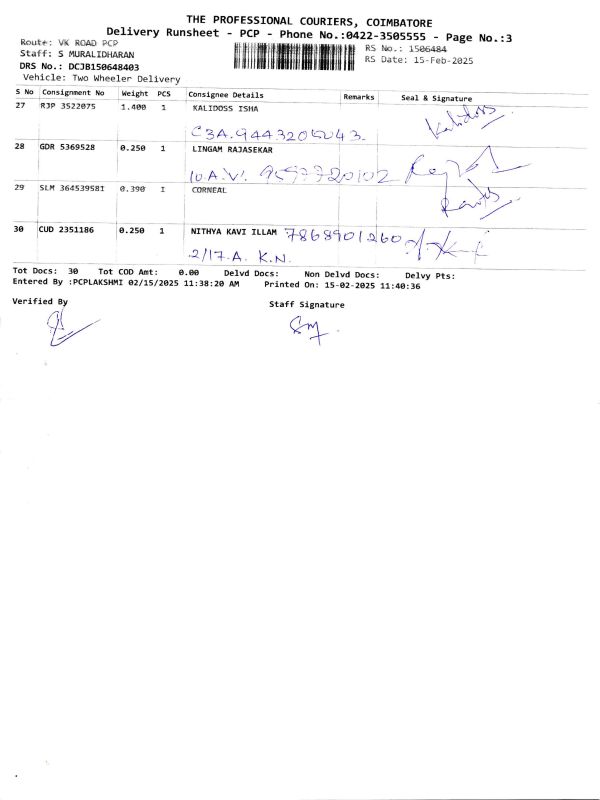 THE PROFESSIONAL COURIERS, COIMBATORE
Delivery Runsheet - PCP - Phone No.:0422-3505555 - Page No.:3
Route: VK ROAD PCP
RS No.: 1506484
Staff: S MURALIDHARAN
RS Date: 15-Feb-2025
DRS No.: DCJB150648403
Vehicle: Two Wheeler Delivery
S No Consignment No Weight PCS Consignee Details Remarks Seal & Signature
27 RJP 3522075 1.400 1 KALIDOSS ISHA
Kalidoss
C3A.9443205043.
28 GDR 5369528 0.250 1 LINGAM RAJASEKAR
10 A.V. 9597720102
29 SLM 36453958I 0.390 I CORNEAL
30 CUD 2351186 0.250 1 NITHYA KAVI ILLAM 7868901260
2/17.A. K.N.
Tot Docs: 30 Tot COD Amt: 0.00 Delvd Docs: Non Delvd Docs: Delvy Pts:
Entered By :PCPLAKSHMI 02/15/2025 11:38:20 AM Printed On: 15-02-2025 11:40:36
Verified By
Staff Signature